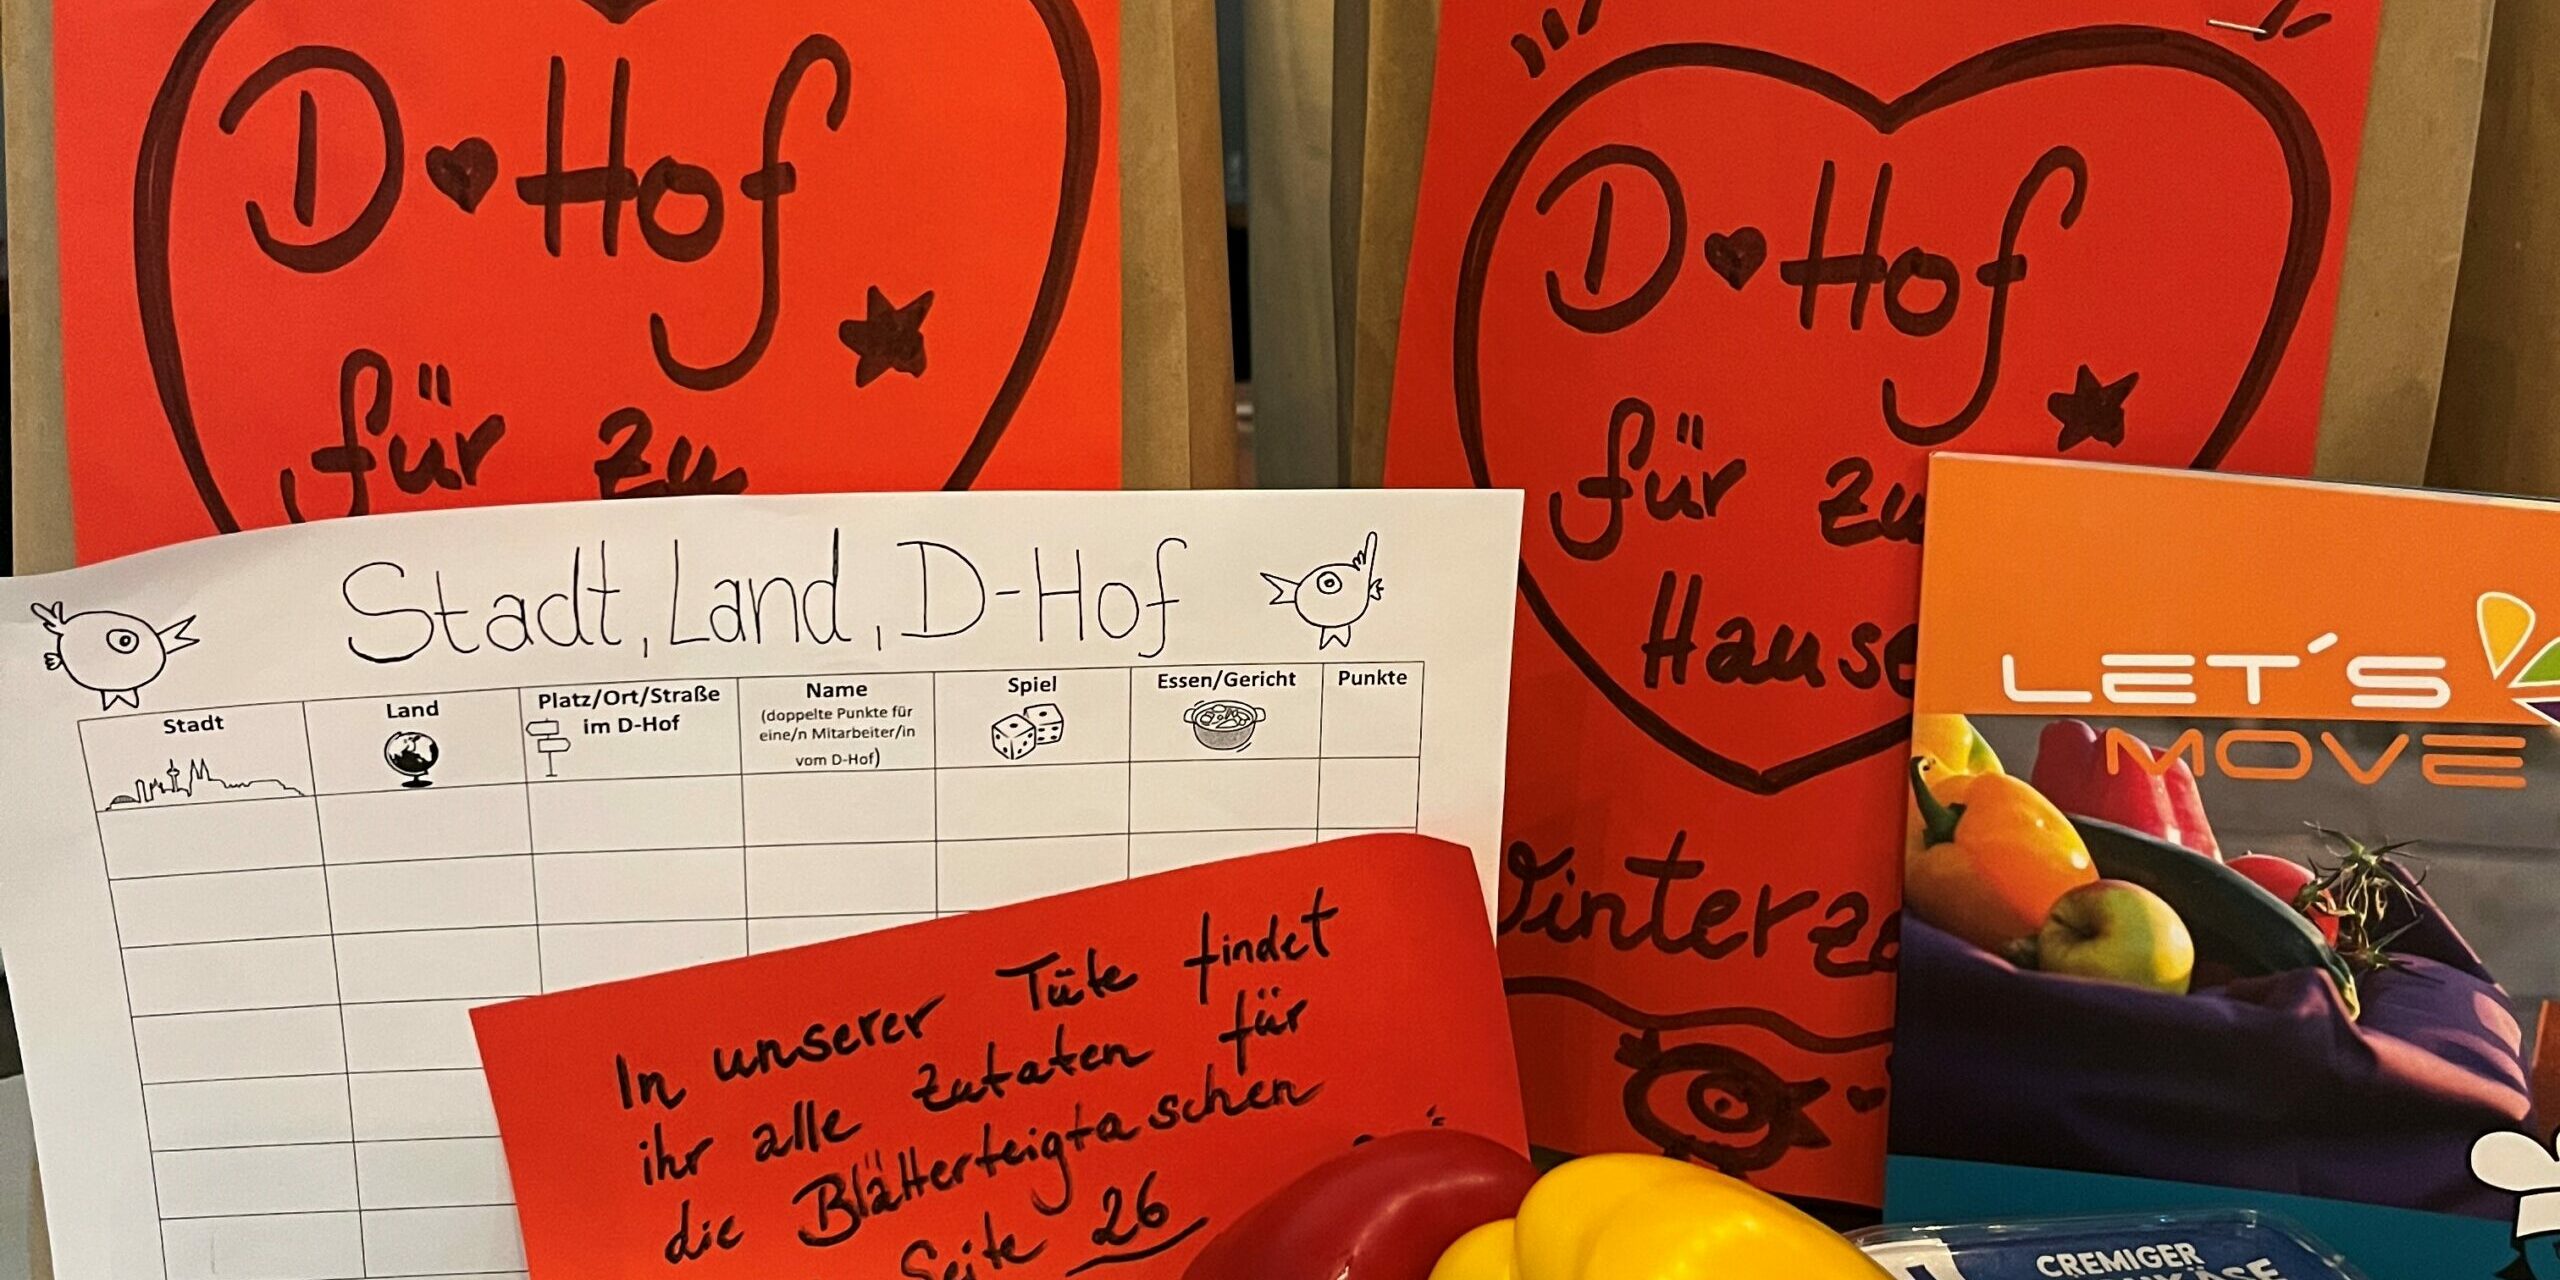 D♥Hof
für zu
D♥Hof
für zu
Hause
Stadt, Land, D-Hof
Stadt
Land
Platz/Ort/Straße
im D-Hof
Name
(doppelte Punkte für
eine/n Mitarbeiter/in
vom D-Hof)
Spiel
Essen/Gericht
Punkte
In unserer Tüte findet
ihr alle Zutaten für
die Blätterteigtaschen
Seite 26
LET'S
MOVE
CREMIGER